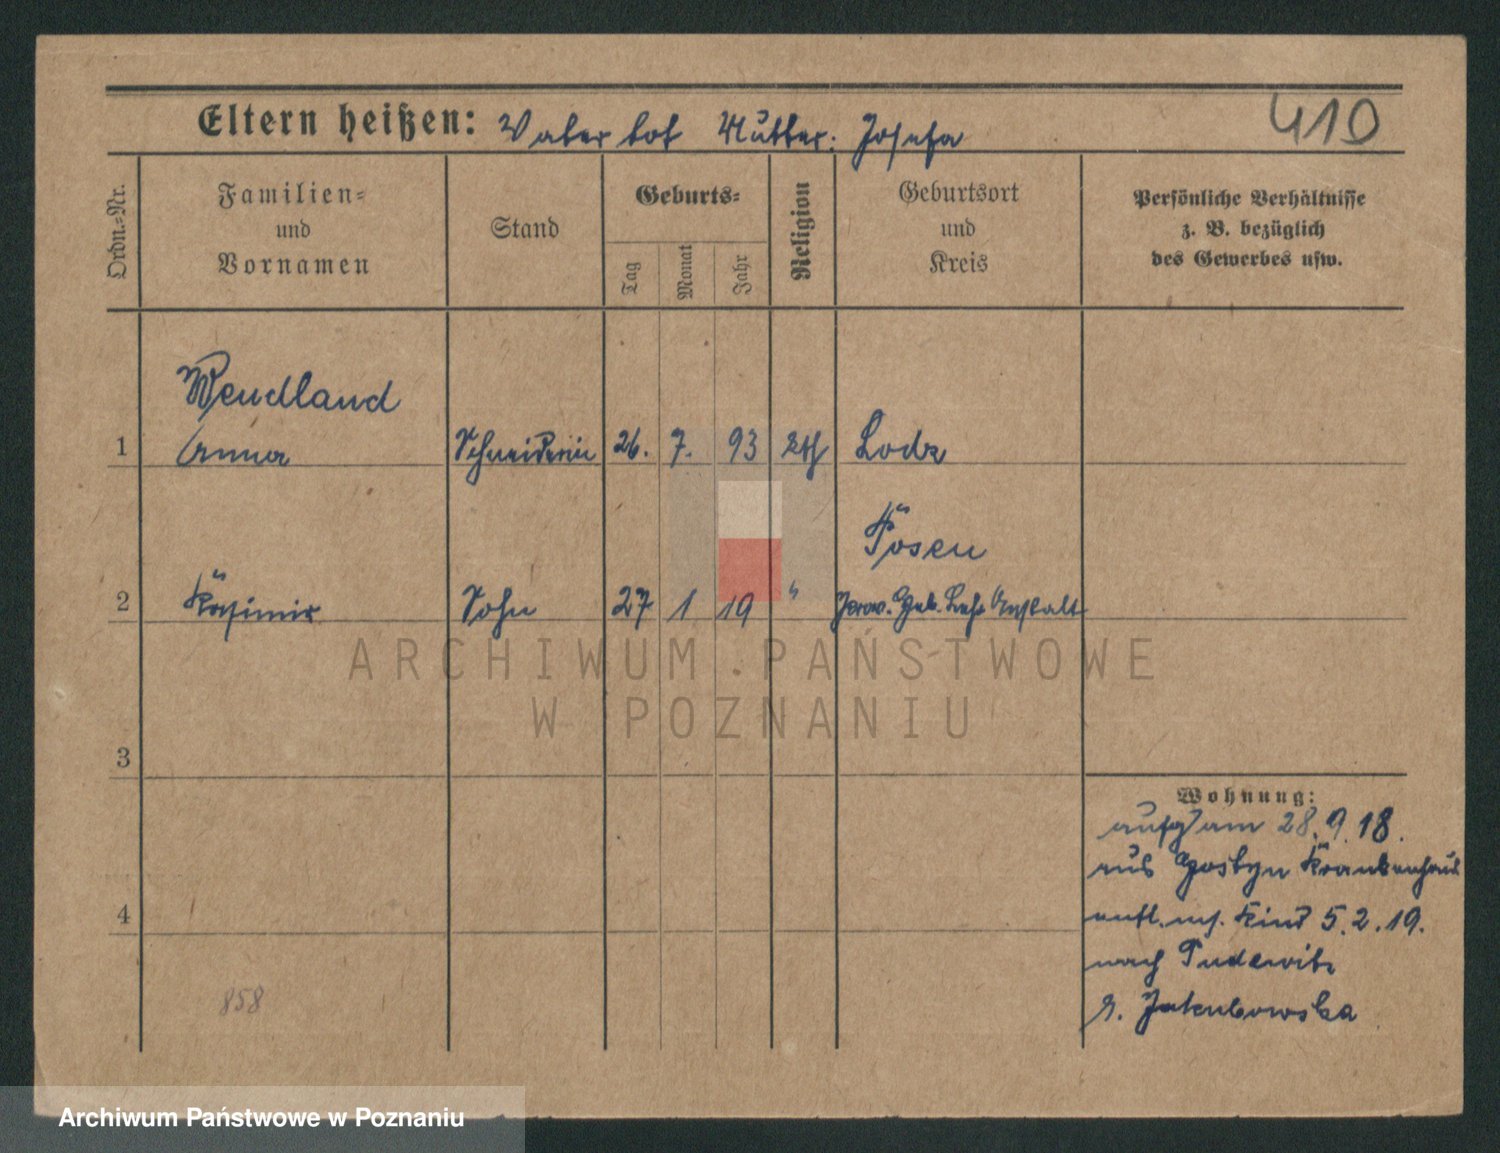 Eltern heißen: Vater tot Mutter: Josefa
410
Ordn.-Nr.
Familien-
und
Vornamen
Stand
Geburts-
Tag
Monat
Jahr
Religion
Geburtsort
und
Kreis
Persönliche Verhältnisse
z. B. bezüglich
des Gewerbes usw.
Wendland
1 Anna Schneiderin 26. 7. 93 kth Lodz
Posen
2 Kasimir Sohn 27 1 19 " Prov. Heb. Lehr Anstalt
3
4
Wohnung:
am 28.9.18.
aus Gostyn Krankenhaus
entl. m. Kind 5.2.19.
nach Pudewitz
z. Jakubowska
858
ARCHIWUM PAŃSTWOWE
W POZNANIU
Archiwum Państwowe w Poznaniu